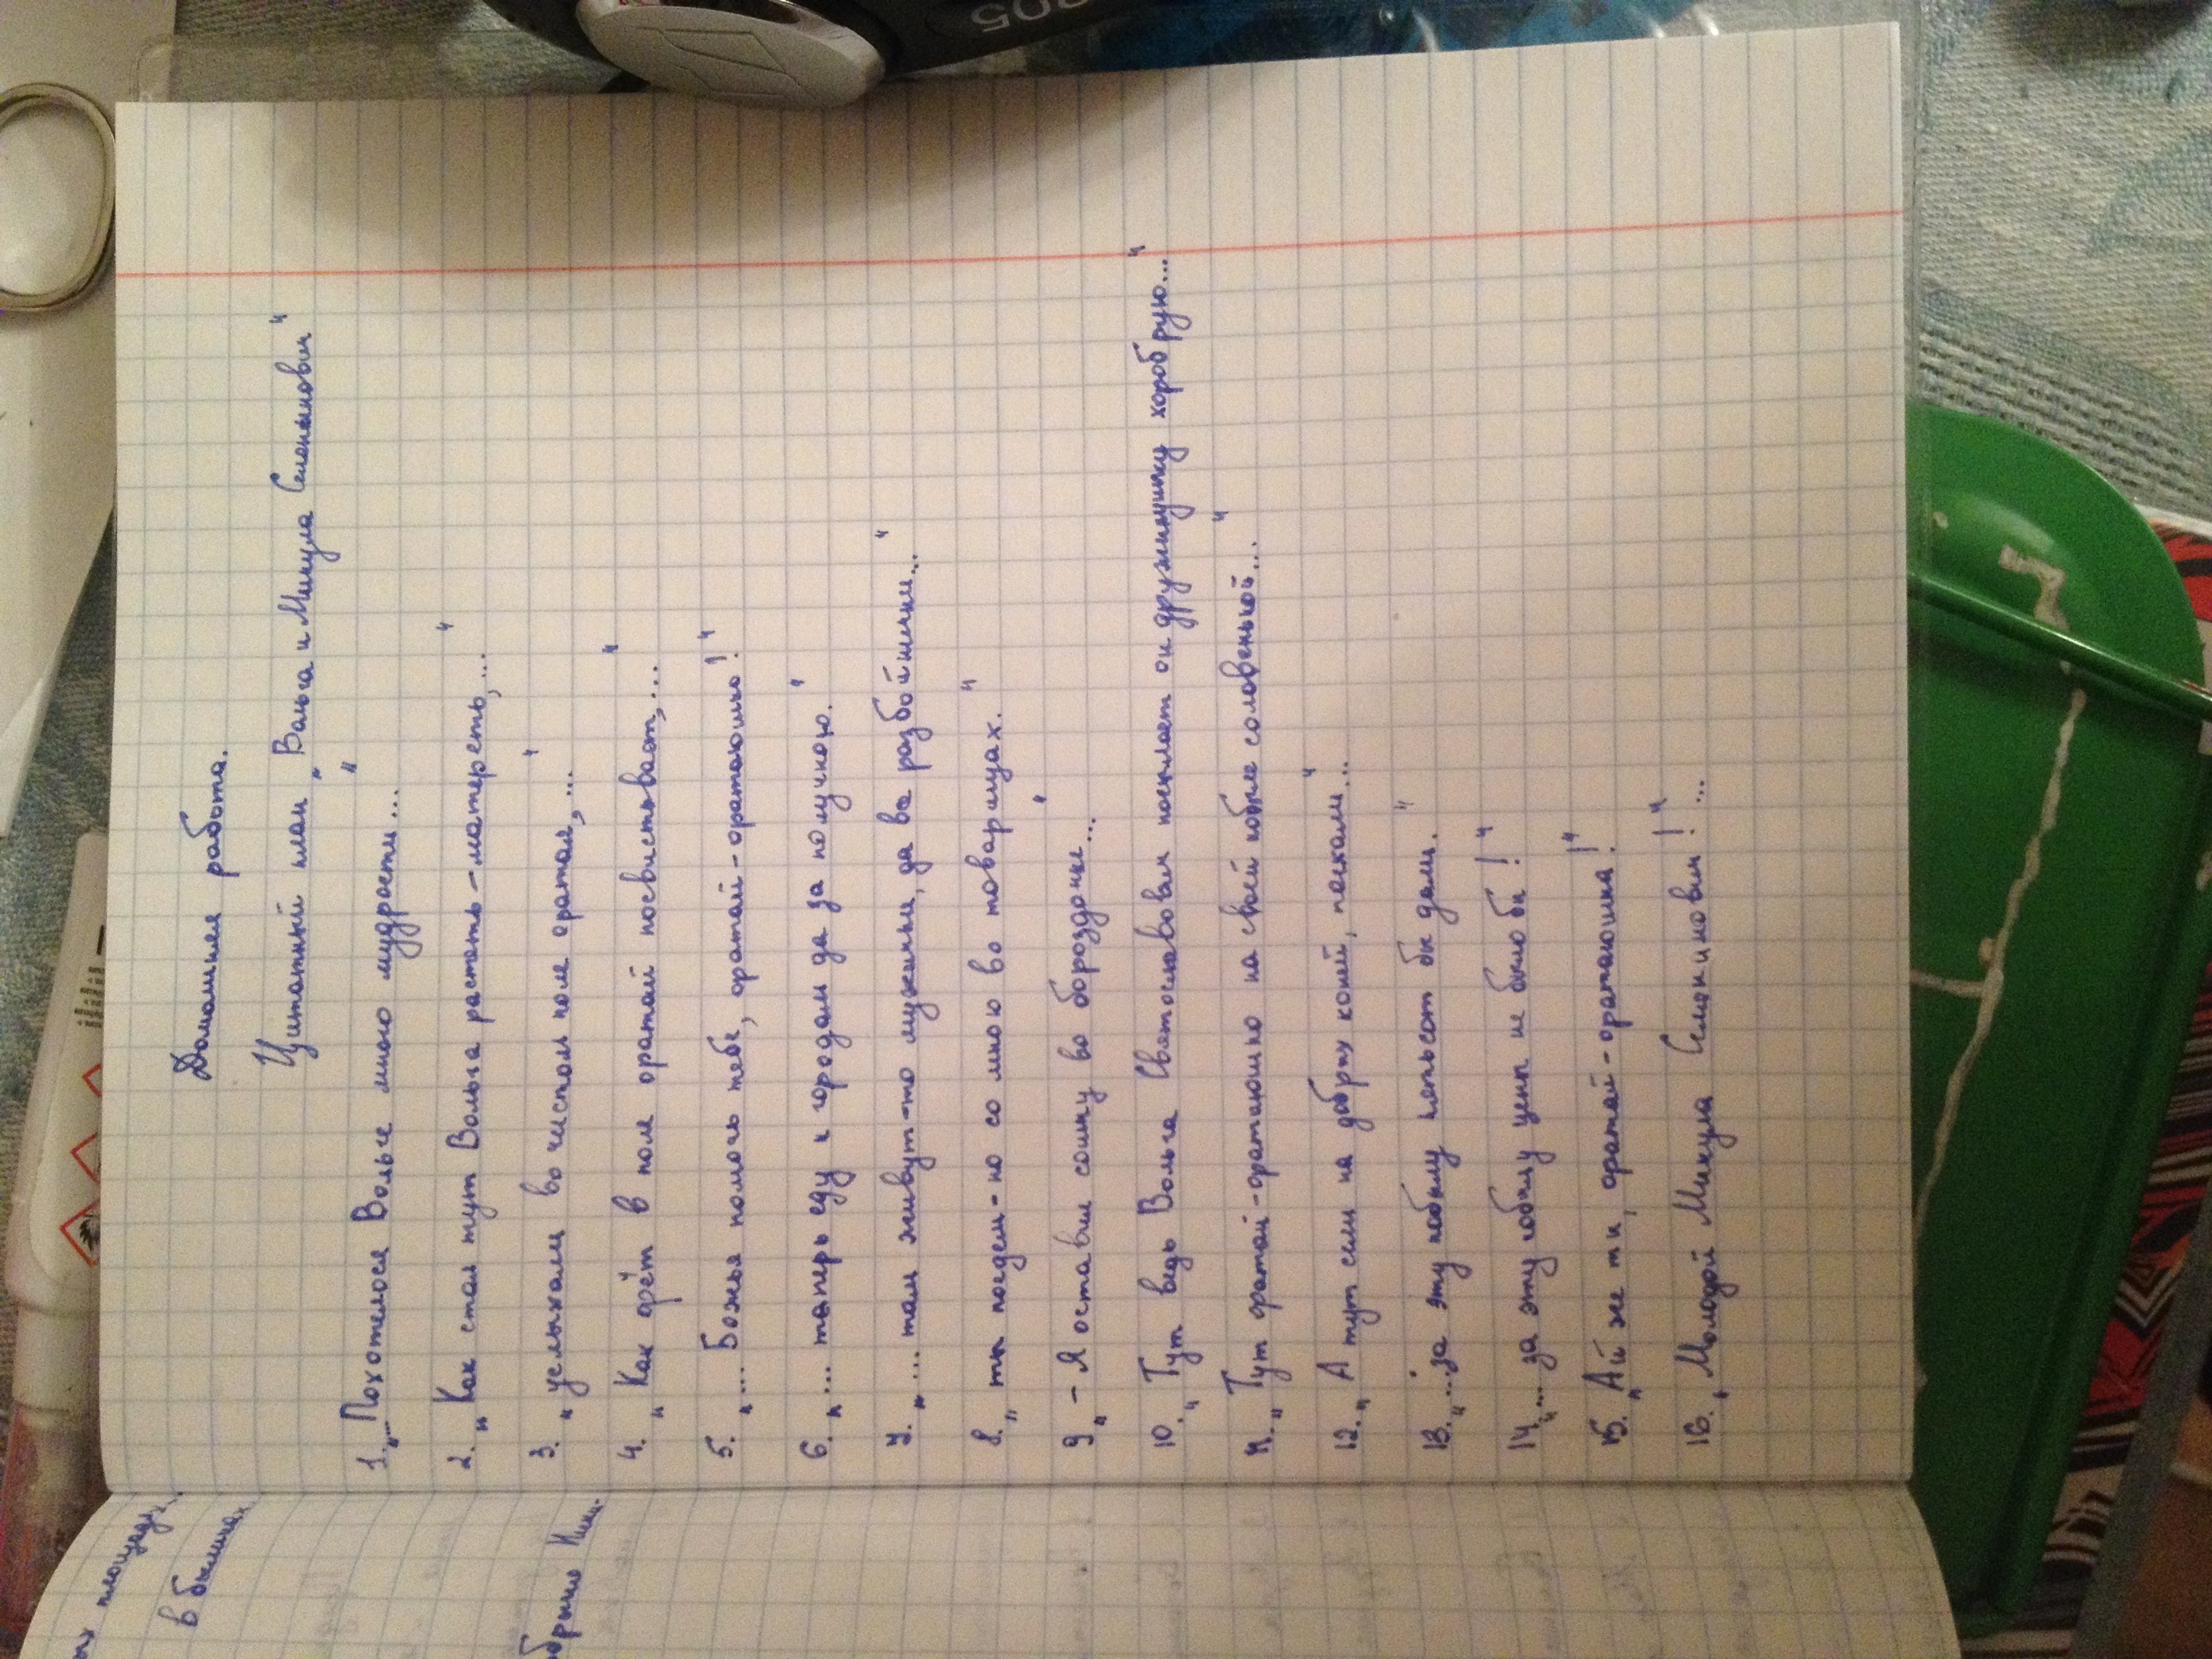 Домашняя работа.
Цитатный план „Вольга и Микула Селенинович"
1. „Похотелося Вольге много мудрости..."
2. „Как стал тут Вольга растеть-матереть,..."
3. „услыхали во чистом поле оратая,..."
4. „Как орёт в поле оратай посвистывает,..."
5. „... Божья помочь тебе, оратай-оратаюшко!"
6. „... теперь еду к городам да за получкою."
7. „... там живут-то мужички, да все разбойнички..."
8. „ты поедем-ко со мною во товарищах."
9. „- Я оставил сошку во бороздочке..."
10. „Тут ведь Вольга Святославович посылает он дружинушку хоробрую..."
11. „Тут оратай-оратаюшко на своей кобыле соловенькой..."
12. „А тут сели на добрых коней, поехали..."
13. „...за эту кобылу пятьсот бы дали."
14. „...за эту кобылу цены не было бы!"
15. „Ай же ты, оратай-оратаюшка!"
16. „Молодой Микула Селянинович!"...
площадях,
в былинах